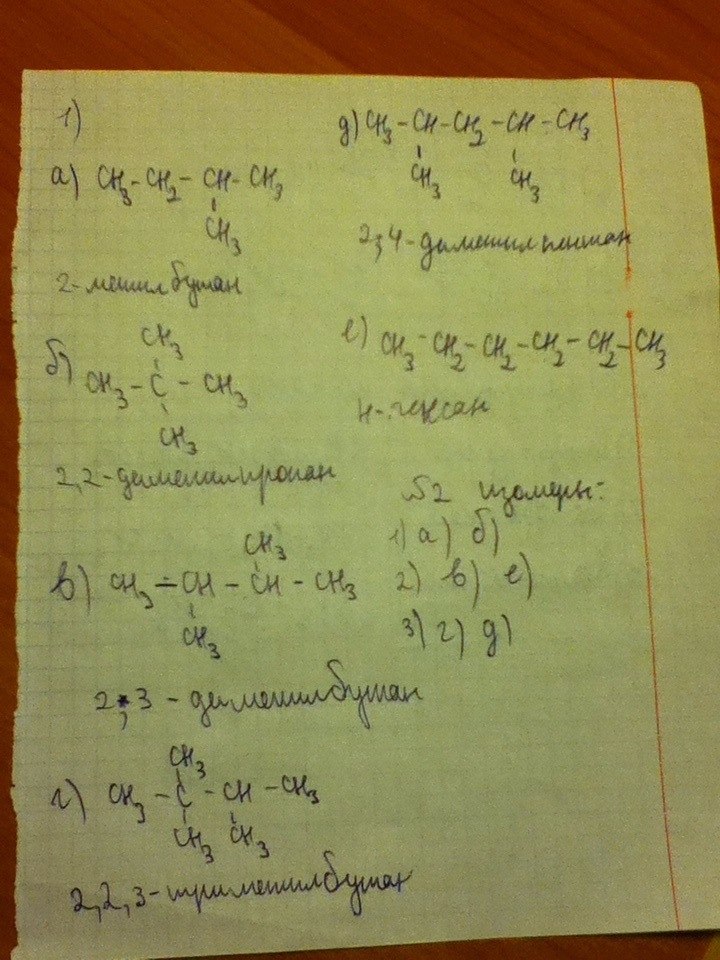 1)
а) CH3-CH2-CH-CH3
CH3
2-метилбутан
б) CH3
CH3-C-CH3
CH3
2,2-диметилпропан
в) CH3
CH3-CH-CH-CH3
CH3
2,3-диметилбутан
г) CH3
CH3-C-CH-CH3
CH3 CH3
2,2,3-триметилбутан
д) CH3-CH-CH2-CH-CH3
CH3 CH3
2,4-диметилпентан
е) CH3-CH2-CH2-CH2-CH2-CH3
н-гексан
№2 изомеры:
1) а) б)
2) в) е)
3) г) д)